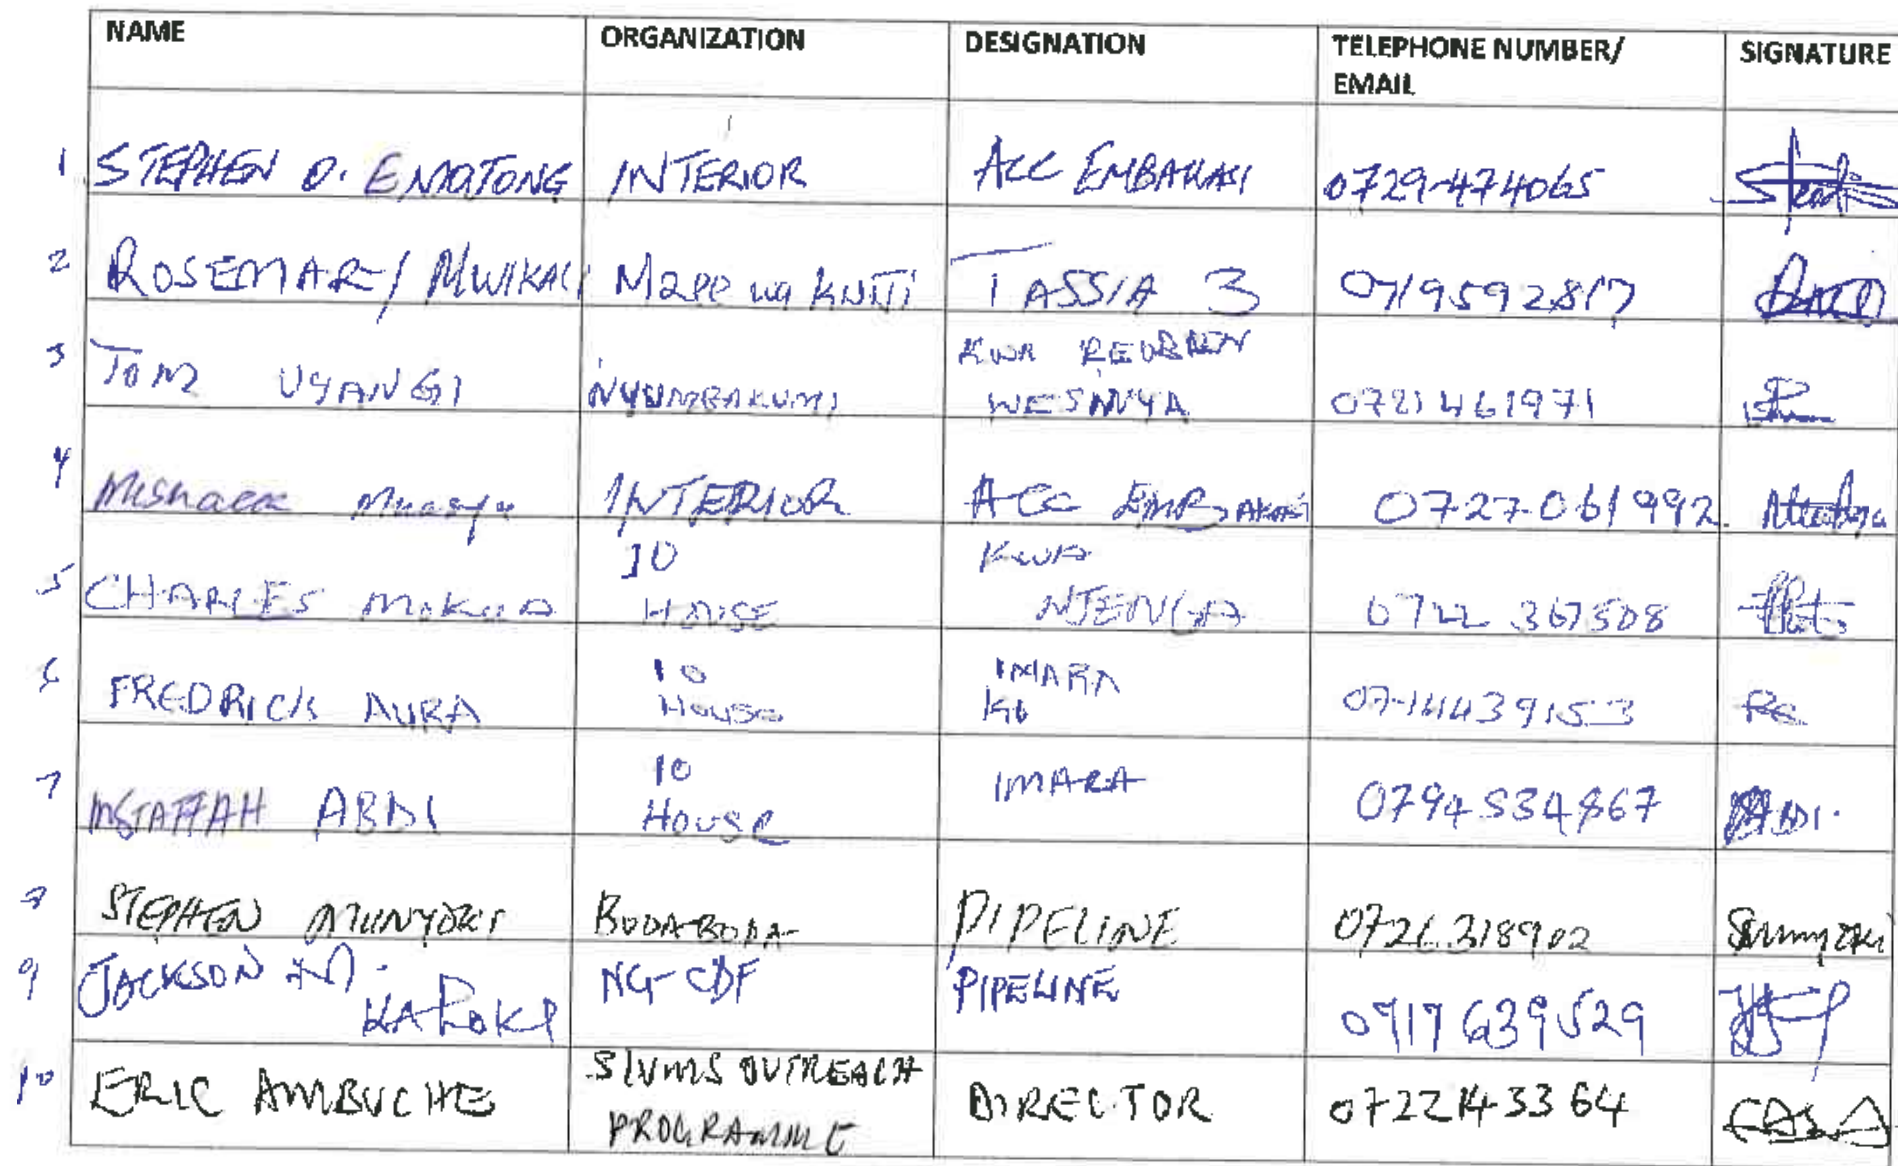 NAME ORGANIZATION DESIGNATION TELEPHONE NUMBER/ EMAIL SIGNATURE
1 STEPHEN O. EMOTONG INTERIOR ACC EMBAKASI 0729-474065
2 ROSEMARY MWIKALI Mzee wa KNITI TASSIA 3 0719592817
3 TOM UYANGI NYUMBAKUMI KWA REUBEN WESINYA 0721461971
4 INTERIOR ACC EMBAKASI 0727-061992
5 CHARLES MOKUA 10 HOUSE KWA NJENGA 0722 367508
6 FREDRICK AURA 10 HOUSE IMARA
7 MSTAFFAH ABDI 10 House IMARA 0794534867 ABDI.
STEPHEN MUNYOKI BODABODA PIPELINE 0726318902 Smunyoki
9 JACKSON M. KALOKI NG-CDF PIPELINE 0717639529
10 ERIC AMBUCHE SLUMS OUTREACH PROGRAMME DIRECTOR 0722143364